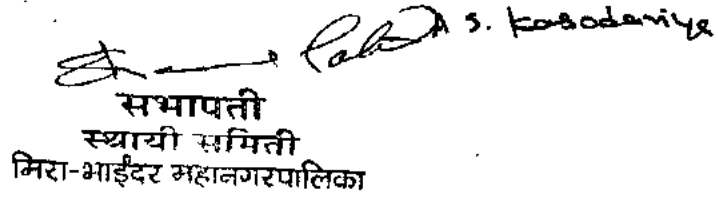 S. Kasodariya
सभापती
स्थायी समिती
मिरा-भाईंदर महानगरपालिका